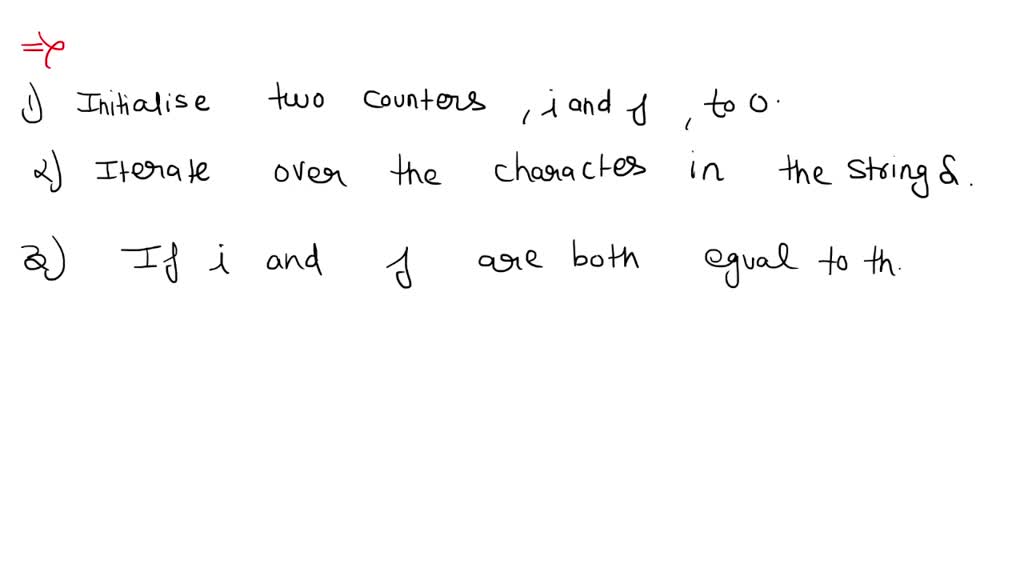 ⇒
1) Initialise two counters, i and j, to 0.
2) Iterate over the characters in the string S.
3) If i and j are both equal to th.